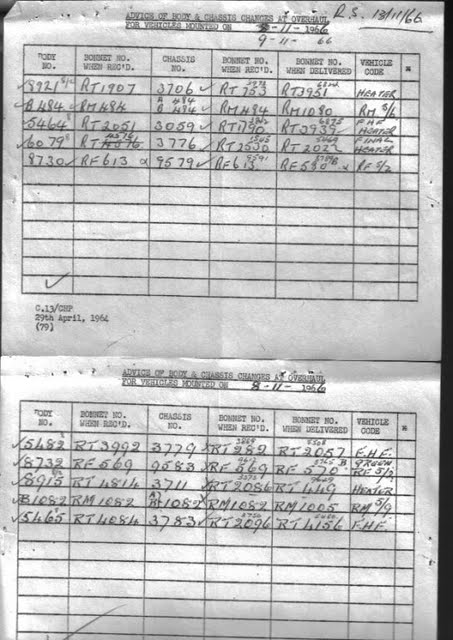 R.S. 13/11/66
ADVICE OF BODY & CHASSIS CHANGES AT OVERHAUL
FOR VEHICLES MOUNTED ON 8-11-1966
9-11- 66
BODY NO. BONNET NO. WHEN REC'D. CHASSIS NO. BONNET NO. WHEN REC'D. BONNET NO. WHEN DELIVERED VEHICLE CODE
8921 RT1907 3706 RT753 RT3951 HEATER
B484 RM484 A 484 B 484 RM484 RM1080 RM 5/6
5464 RT2051 3059 RT1790 RT3939 F.H.F HEATER
6079 3776 RT2530 RT2022 FINAL HEATER
8730 RF613 9579 RF613 RF530 RF 5/2
C.13/CHP
29th April, 1964
(79)
ADVICE OF BODY & CHASSIS CHANGES AT OVERHAUL
FOR VEHICLES MOUNTED ON 8-11-1966
BODY NO. BONNET NO. WHEN REC'D. CHASSIS NO. BONNET NO. WHEN REC'D. BONNET NO. WHEN DELIVERED VEHICLE CODE
5482 RT3992 3779 RT282 RT2057 F.H.F.
8732 RF569 9583 RF569 RF570 GREEN RF 5/2
8915 RT4814 3711 RT2086 RT449 HEATER
B1082 RM1082 1082 RM1082 RM1005 RM 5/9
5465 RT4084 3783 RT2096 RT4156 F.H.F.